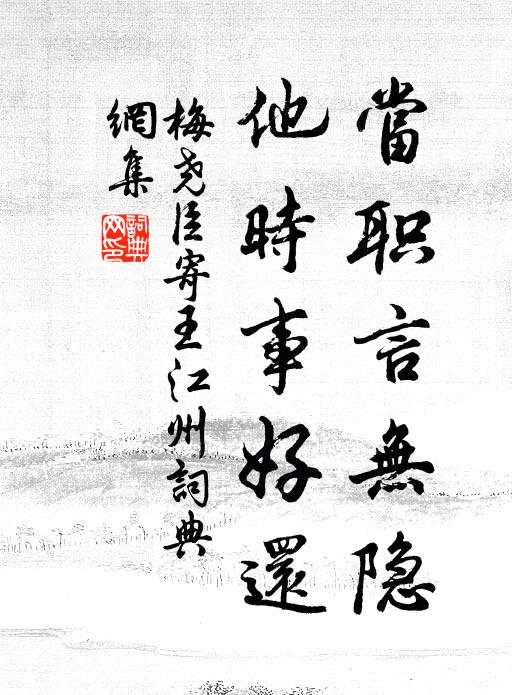 當职言無隐
他時事好還
梅尧臣寄王江州詞典
網集
詞典網印